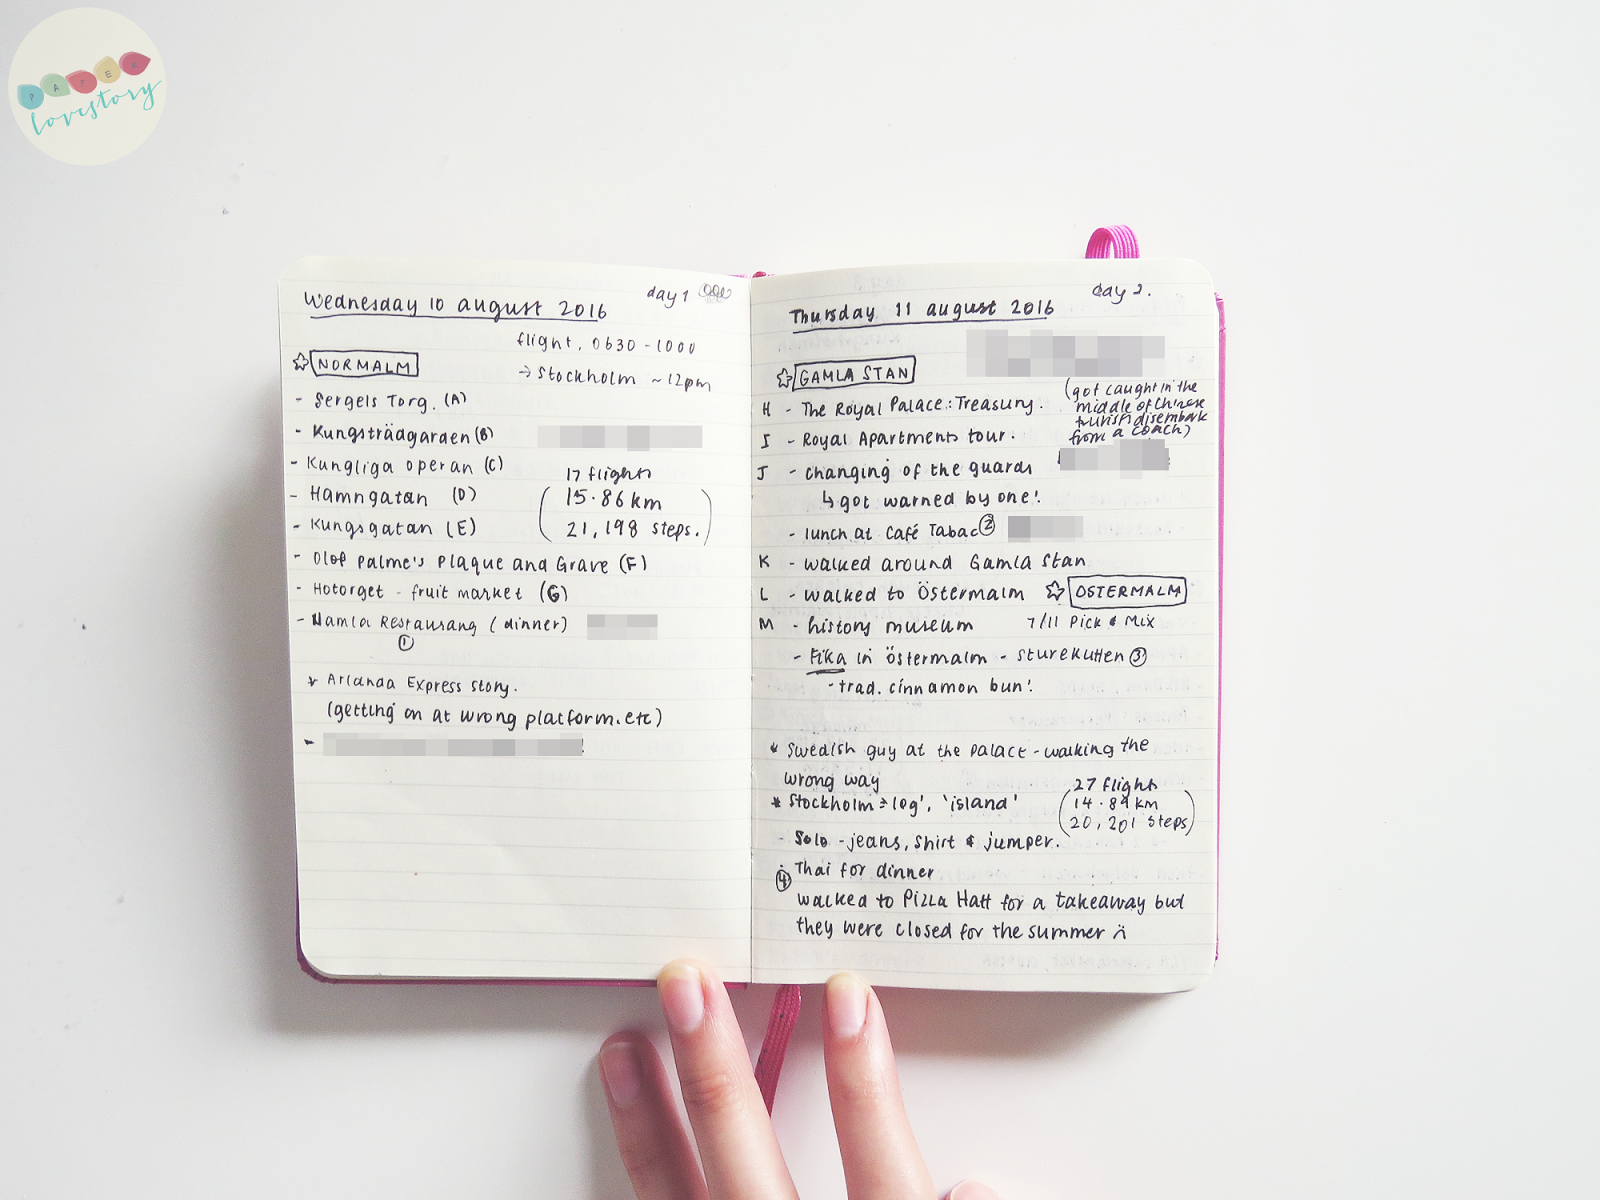 PAPER
lovestory
Wednesday 10 august 2016
day 1
flight, 0630 - 1000
→ Stockholm ~12pm
☆ NORMALM
- Sergels Torg. (A)
- Kungsträdgarden (B)
- Kungliga operan (C)
- Hamngatan (D)
- Kungsgatan (E)
17 flights
15.86 km
21,198 steps.
- Olof Palme's Plaque and Grave (F)
- Hotorget - fruit market (G)
- Hamla Restaurang (dinner)
①
* Arlanda Express story.
(getting on at wrong platform. etc)
-
Thursday 11 august 2016
day 2.
☆ GAMLA STAN
(got caught in the
middle of Chinese
disembark
from a coach)
H - The Royal Palace: Treasury.
I - Royal Apartments tour.
J - changing of the guards
↳ got warned by one!
- lunch at Café Tabac ②
K - walked around Gamla Stan
L - walked to Östermalm ☆ OSTERMALM
M - history museum 7/11 Pick & Mix
- Fika in Östermalm - sturekatten ③
- trad. cinnamon bun!
* Swedish guy at the palace - walking the
wrong way
* Stockholm = log', 'island'
27 flights
14.89 km
20,201 steps
- Solo - jeans, shirt & jumper.
④ - Thai for dinner
walked to Pizza Hatt for a takeaway but
they were closed for the summer